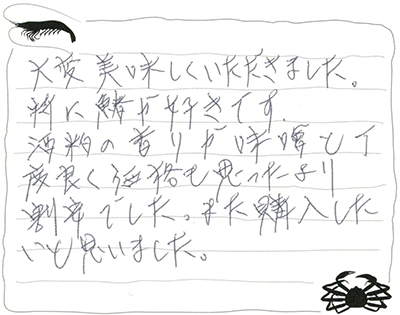 大変美味しくいただきました。
特に鱒が好きです.
酒粕の香りが味噌と丁
度良く価格も思ったより
割安でした。また購入した
いと思いました。